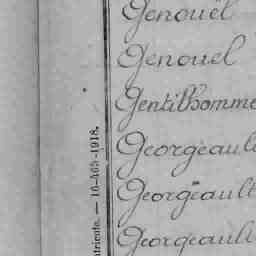 Genouël
Genouel
Gentilhomme
Georgeault
Georgeault
Georgeault
— 16-465-1918.